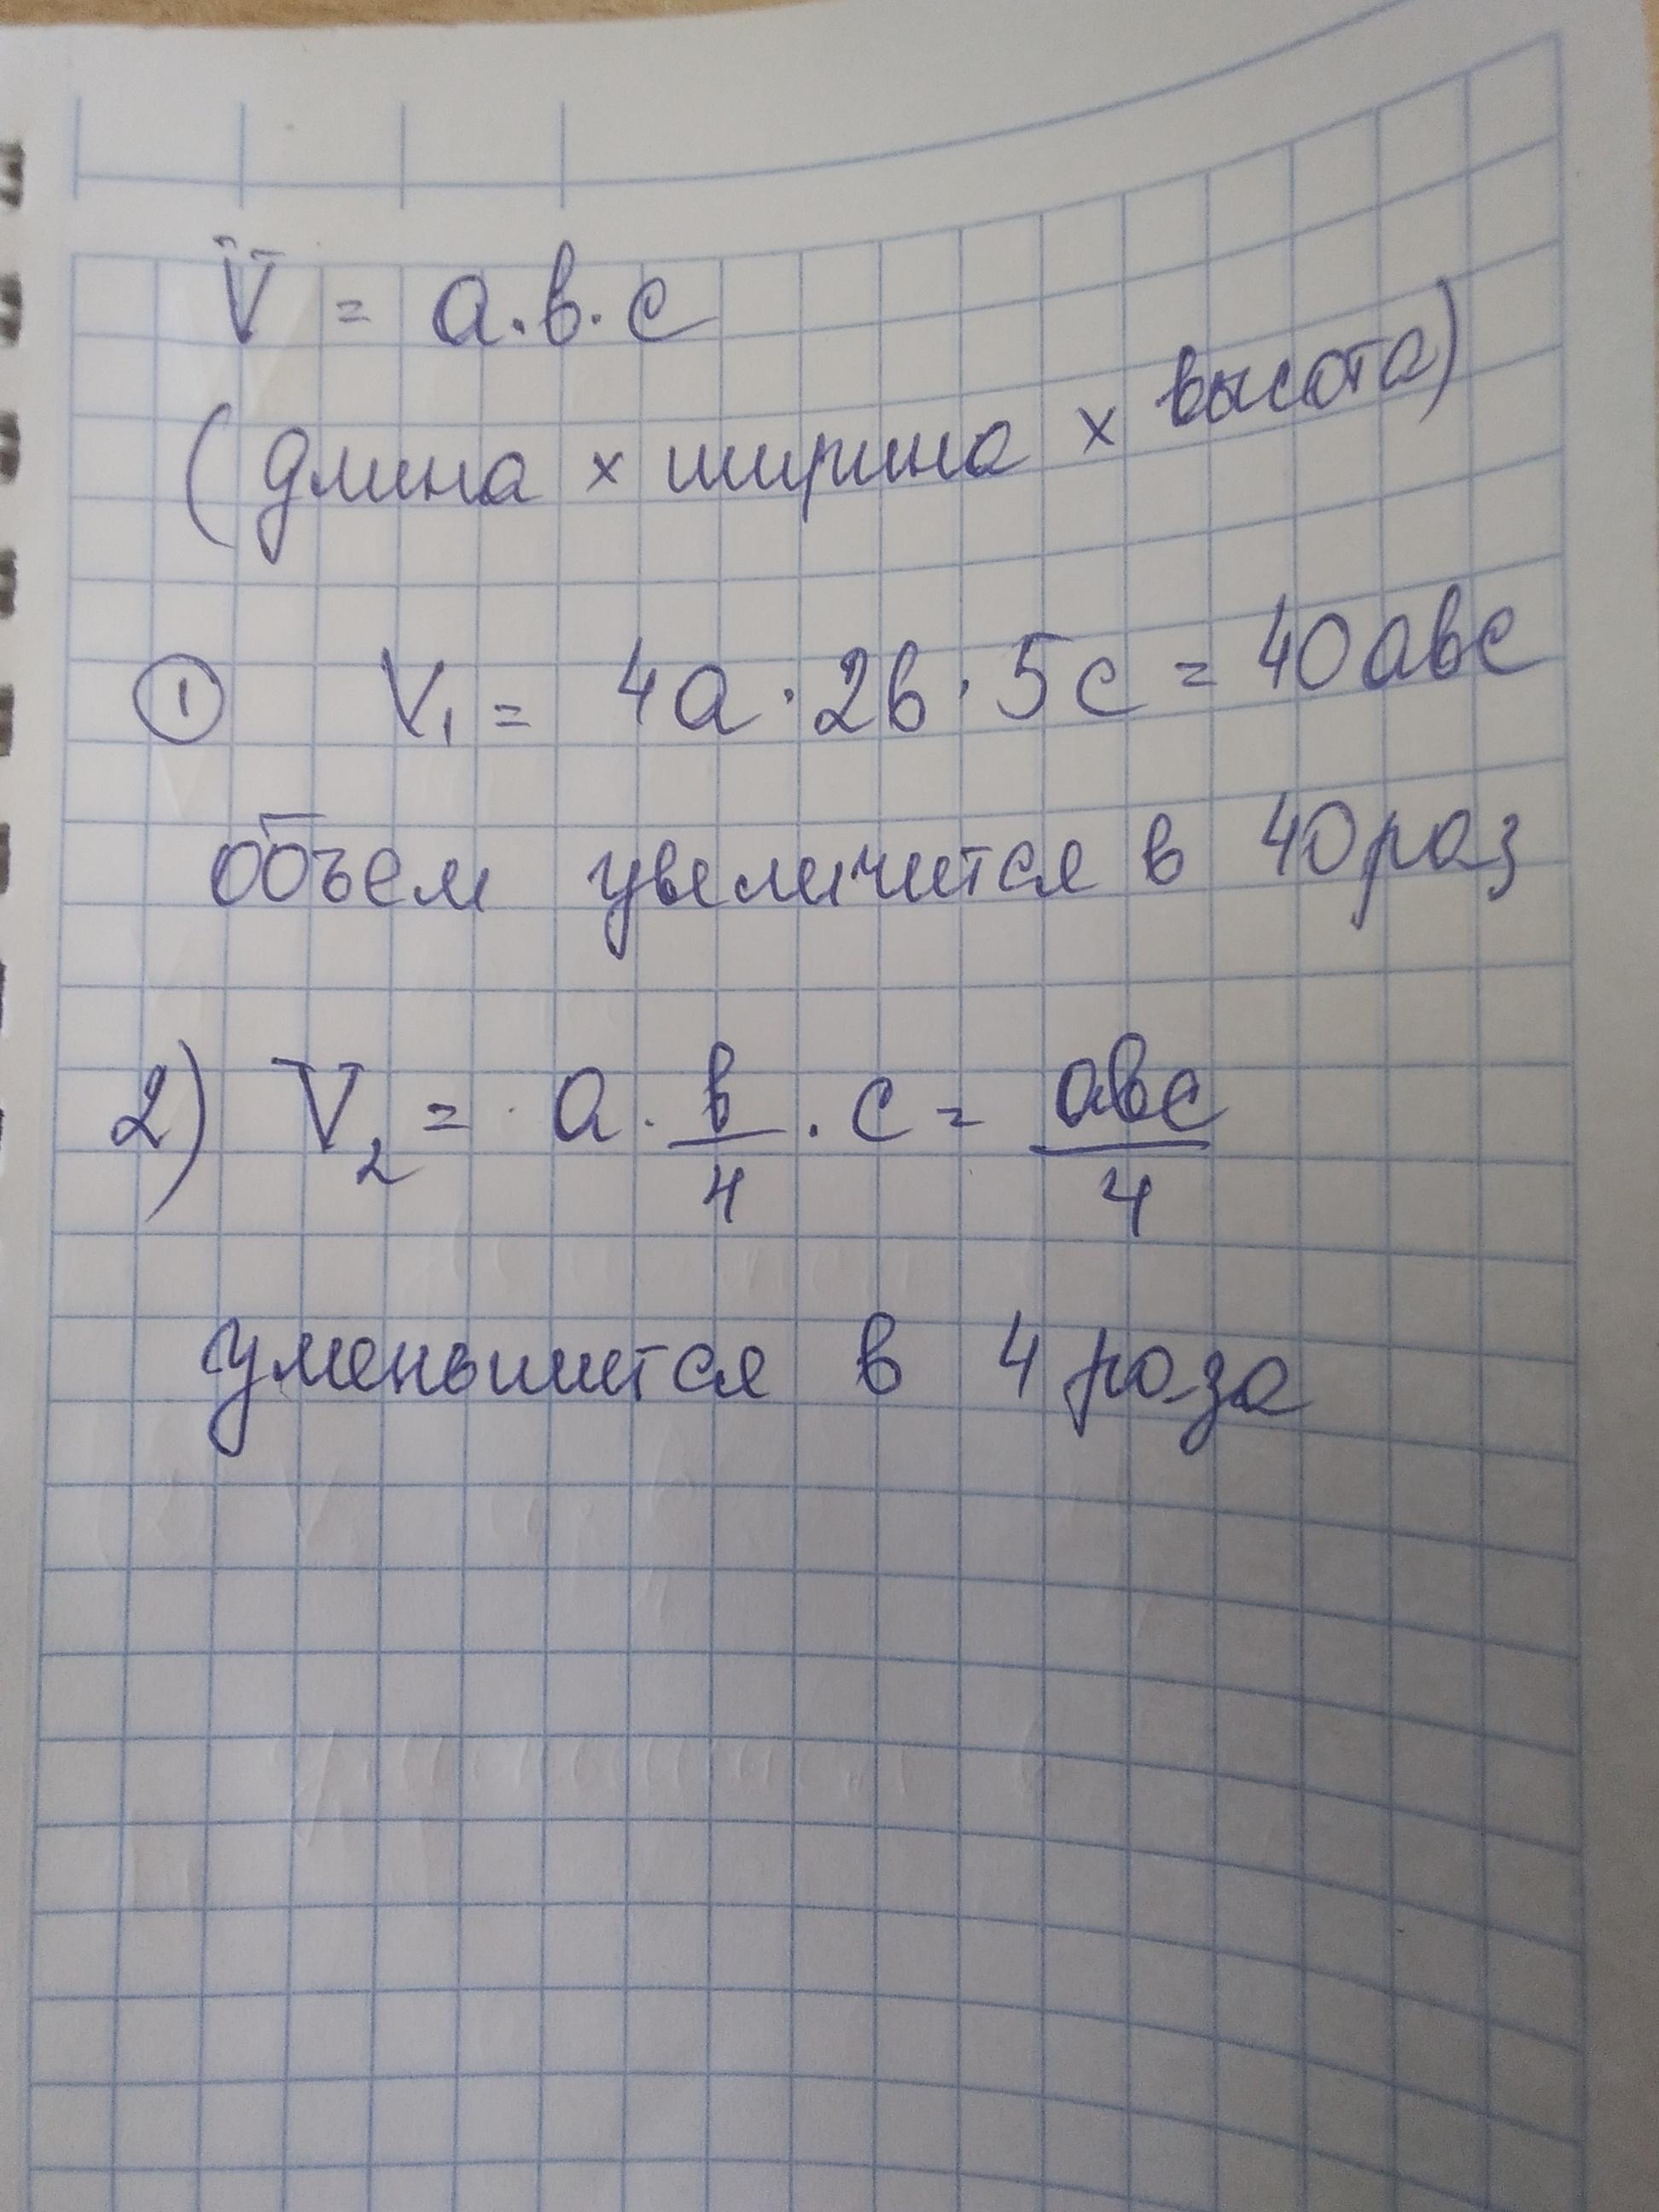 V = a·b·c
(длина × ширина × высота)
① V₁ = 4a · 2b · 5c = 40abc
объем увеличится в 40 раз
2) V₂ = a · b/4 · c = abc/4
уменьшится в 4 раза